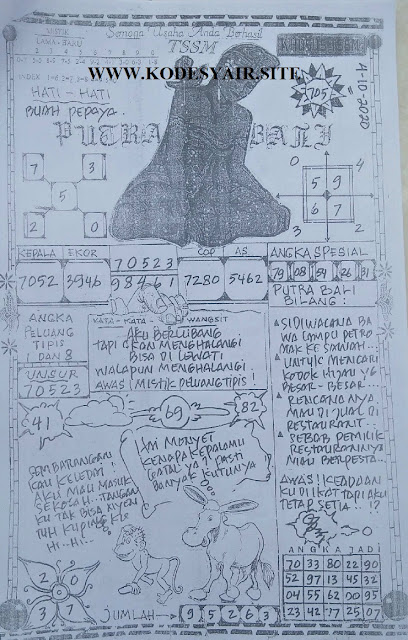 MISTIK
LAMA - BARU
Semoga Usaha Anda Berhasil
TSSM
WWW.KODESYAIR.SITE
HATI - HATI
BUAH PEPAYA.
PUTRA BALI
7705
4-10-2020
7 3
5
2 0
0 4
5 9
6 7
3 2
KEPALA EKOR
7052 3946
70523
98461
COP AS
7280 5462
ANGKA SPESIAL
79 08 54 26 31
PUTRA BALI
BILANG :
ANGKA
PELUANG
TIPIS
1 DAN 8
UNSUR
70523
KATA - KATA WANGSIT
AKU BERLUBANG
TAPI AKAN MENGHALANGI
BISA DI LEWATI
WALAPUN MENGHALANGI
AWAS! MISTIK PELUANG TIPIS!
SIDIWACANA BA
WA LAMPU PETRO
MAK KE SAWAH...
UNTUK MENCARI
KODOK HIJAU YG
BESAR-BESAR...
RENCANANYA
MAU DI JUAL DI
RESTAURANT..
SEBAB PEMILIK
RESTAURANNYA
MAU BERPESTA..
AWAS! KEADAAN
KU DI IKAT TAPI AKU
TETAP SETIA ..!?
41
69
82
SEMBARANGAN
KAU KELEDAI!
AKU MAU MASUK
SEKOLAH..TANGAN
KU TAK BISA NYEN
TUH KUPING KU
HI..HI..
HAI MONYET
KENAPA KEPALAMU
GATAL YA? PASTI
BANYAK KUTUNYA
2 0
3 7
JUMLAH → 9 5 2 6 3
ANGKA JADI
70 33 80 22 90
52 97 13 45 32
04 55 62 00 95
23 42 77 25 07